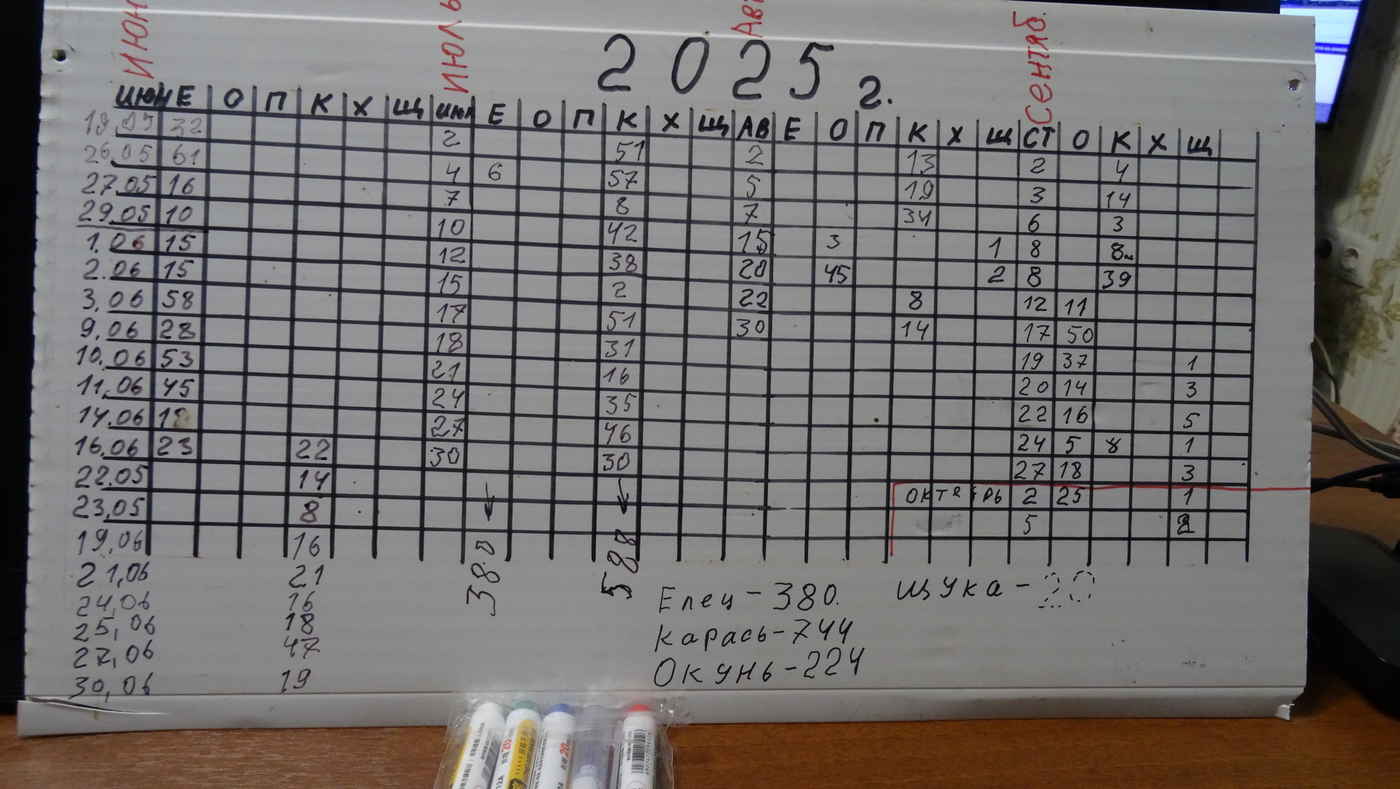 Июн Июль Ав Сентяб.
2025 г.
ИЮН Е О П К Х Щ ИЮЛ Е О П К Х Щ АВ Е О П К Х Щ СТ О К Х Щ
19.05 32 2 51 2 13 2 4
26.05 61 4 6 57 5 19 3 14
27.05 16 7 8 7 34 6 3
29.05 10 10 42 15 3 1 8 8м
1.06 15 12 38 20 45 2 8 39
2.06 15 15 2 22 8 12 11
3.06 58 17 51 30 14 17 50
9.06 23 18 31 19 37 1
10.06 53 21 16 20 14 3
11.06 45 24 35 22 16 5
14.06 27 46 24 5 8 1
16.06 23 22 30 30 27 18 3
22.05 14 ОКТЯБРЬ 2 25 1
23.05 8 5
19,06 16 380 588
21,06 21
24,06 16 Елец-380. ЩУКА-20
25,06 18 Карась-744
27,06 47 Окунь-224
30,06 19